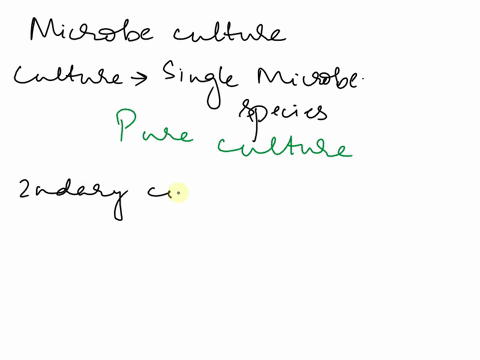 Microbe culture
Culture → Single Microbe.
species
Pure culture
2ndary cu